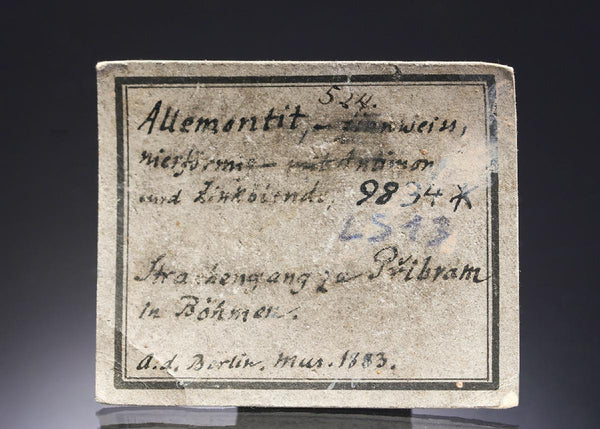 524.
Allemontit, – zinnweiss,
nierförmig – mit Antimon
und Zinkblende, 9834*
LS13
Strachengang zu Přibram
in Böhmen.
a.d. Berlin. Mus. 1883.